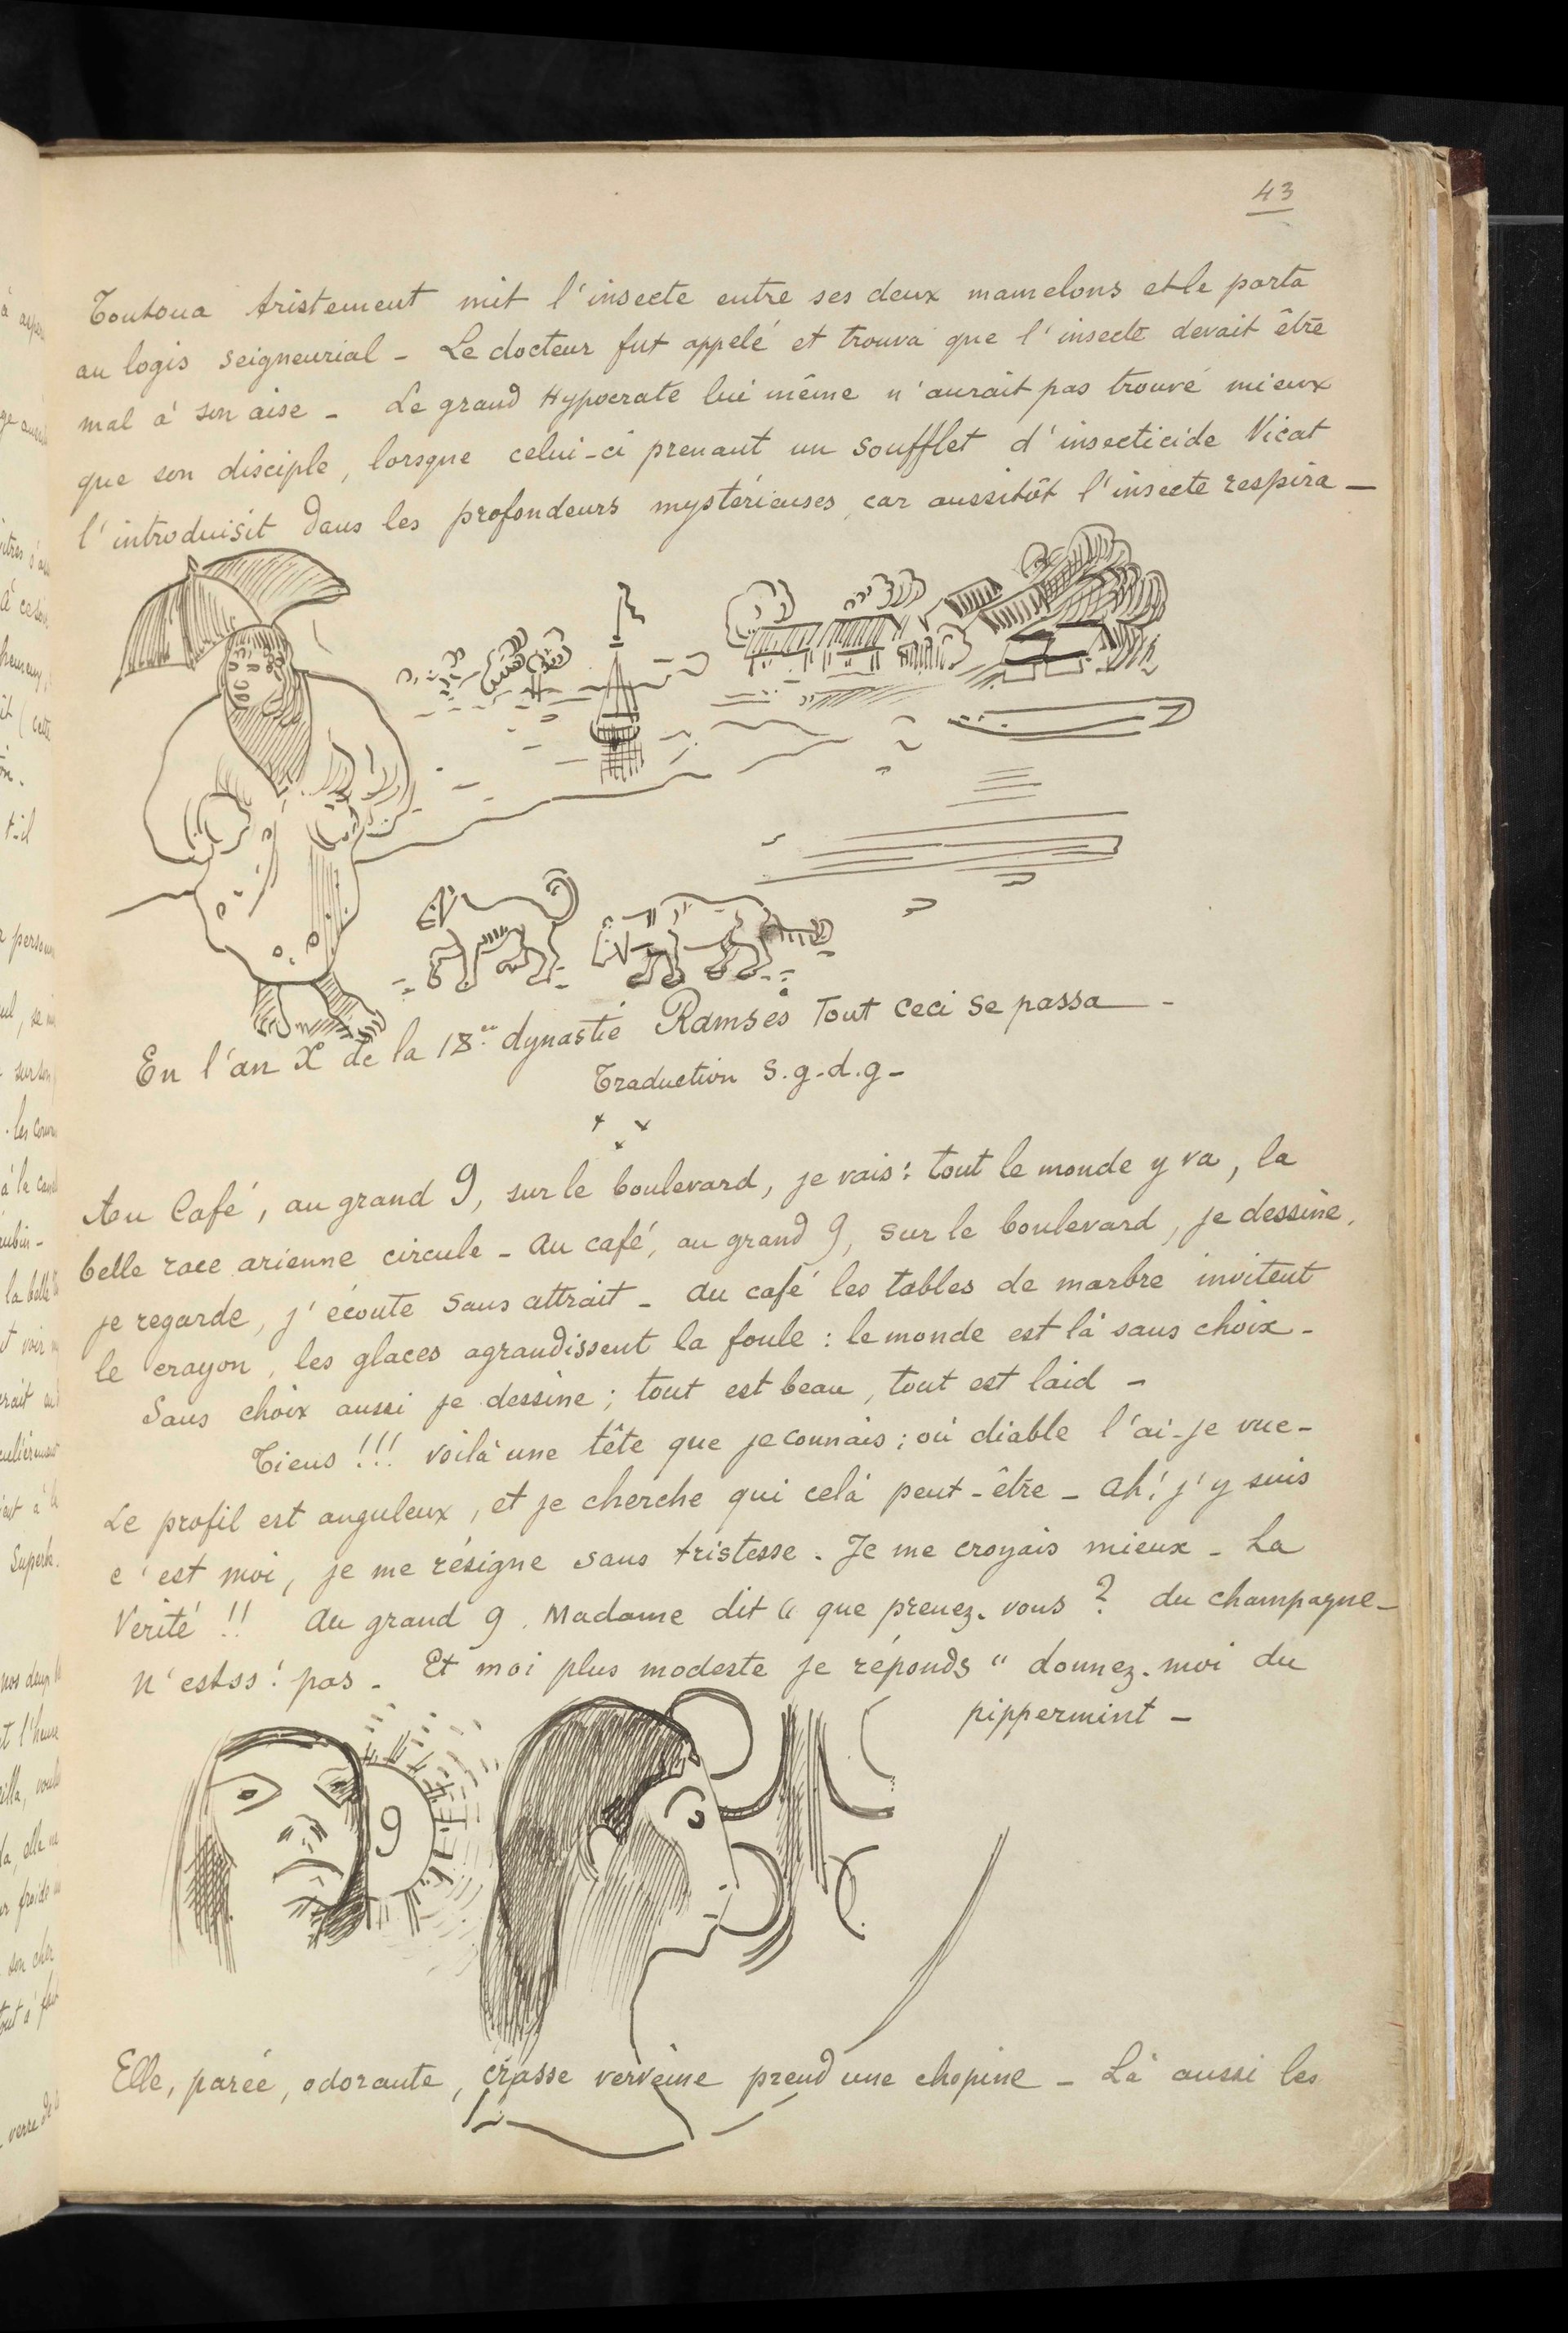 43
Toutoua tristement mit l'insecte entre ses deux mamelons et le porta
au logis seigneurial - Le docteur fut appelé et trouva que l'insecte devait être
mal à son aise - Le grand Hypocrate lui même n'aurait pas trouvé mieux
que son disciple, lorsque celui-ci prenant un soufflet d'insecticide Vicat
l'introduisit dans les profondeurs mystérieuses, car aussitôt l'insecte respira -
En l'an X de la 18e dynastie Ramsès Tout ceci se passa -
Traduction S.g.d.g-
Au Café, au grand 9, sur le boulevard, je vais: tout le monde y va, la
belle race arienne circule - Au café, au grand 9, sur le boulevard, je dessine,
je regarde, j'écoute sans attrait - Au café les tables de marbre invitent
le crayon, les glaces agrandissent la foule : le monde est là sans choix -
Sans choix aussi je dessine ; tout est beau, tout est laid -
Tiens !!! voilà une tête que je connais ; où diable l'ai-je vue-
Le profil est anguleux, et je cherche qui celà peut-être - Ah! j'y suis
c'est moi, je me résigne sans tristesse. Je me croyais mieux - La
Verité !! Au grand 9. Madame dit " que prenez-vous ? du champagne-
N'estss! pas - Et moi plus modeste je réponds " donnez-moi du
pippermint -
9
Elle, parée, odorante, crasse verveine prend une chopine - Là aussi les